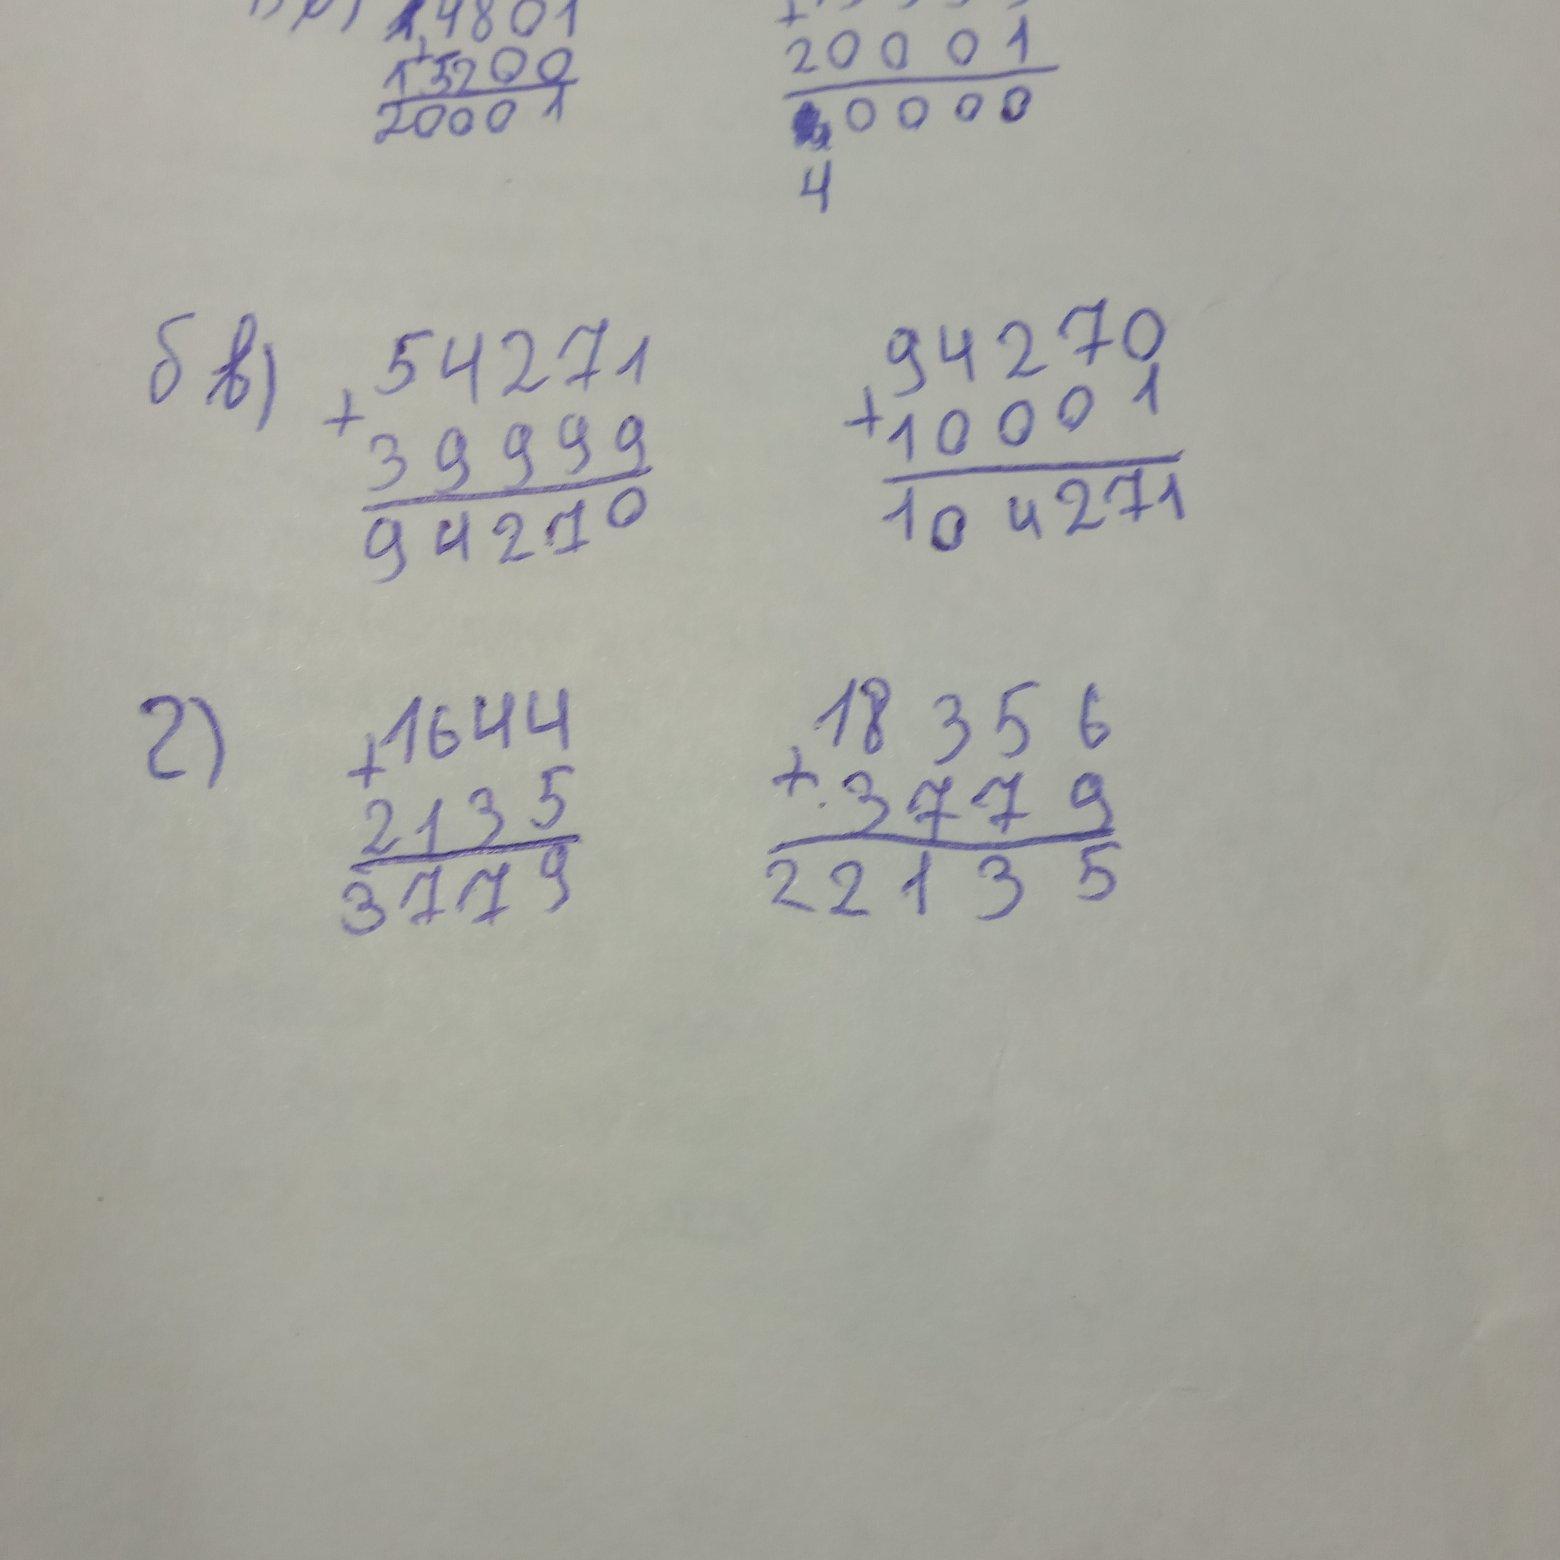 14801
+
15200
20001
+
20001
0000
4
б в) 54271
+
39999
94270
94270
+
10001
104271
г) 1644
+
2135
3779
18356
+
3779
22135